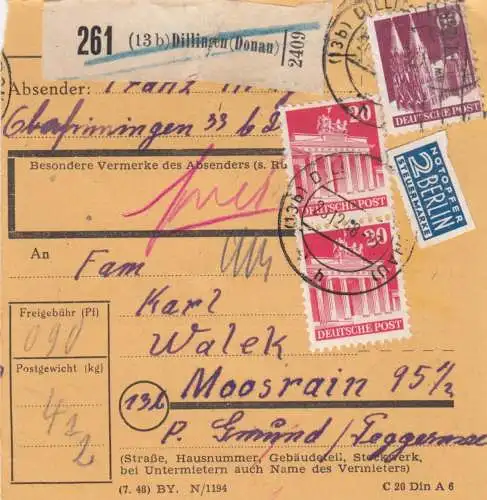 261 (13b) Dillingen (Donau) 2409
(13b) DILLI
DEUTSCHE POST
Absender: Franz
33 b
20
DEUTSCHE POST
NOTOPFER
2 BERLIN
STEUERMARKE
Besondere Vermerke des Absenders (s. Rü
(13b) DI
20
DEUTSCHE POST
An
Fam
Karl
Walek
Moosrain 95½
13b
P. Gmünd/Teggernsee
Freigebühr (Pf)
090
Postgewicht (kg)
4½
(Straße, Hausnummer, Gebäudeteil, Stockwerk,
bei Untermietern auch Name des Vermieters)
(7. 48) BY. N/1194
C 20 Din A 6